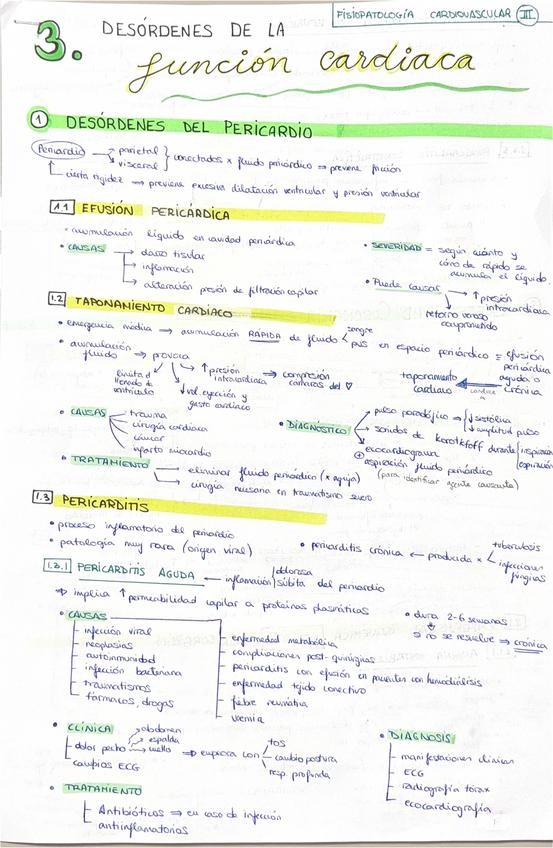 FISIOPATOLOGÍA CARDIOVASCULAR III
3. DESÓRDENES DE LA
función cardiaca
1 DESÓRDENES DEL PERICARDIO
Pericardio → parietal
→ visceral } conectados x fluido pericárdico ⇒ previene fricción
cierta rigidez → previene excesiva dilatación ventricular y presión ventricular
1.1 EFUSIÓN PERICÁRDICA
• acumulación líquido en cavidad pericárdica
• CAUSAS → daño tisular
→ inflamación
→ alteración presión de filtración capilar
• SEVERIDAD = según cuánto y
cómo de rápido se
acumula el líquido.
• Puede causar → ↑ presión
intracardiaca
retorno venoso
comprometido
1.2 TAPONAMIENTO CARDIACO
• emergencia médica → acumulación RÁPIDA de fluido < sangre
pus en espacio pericárdico = efusión
pericárdica
aguda o
crónica
• acumulación
fluido → provoca
limita el
llenado de
ventrículo
↓ vol. eyección y
gasto cardiaco
↑ presión
intracardiaca ⇒ compresión
cámaras del ♥
taponamiento
cardiaco
• CAUSAS
trauma
cirugía cardiaca
cáncer
infarto miocardio
• DIAGNÓSTICO
pulso paradójico → ↓ sistólica
↓ amplitud pulso
sonidos de korotkoff durante inspiración
espiración
ecocardiograma
⊕ aspiración fluido pericárdico
(para identificar agente causante)
• TRATAMIENTO → eliminar fluido pericárdico (x aguja)
→ cirugía necesaria en traumatismo severo
1.3 PERICARDITIS
• proceso inflamatorio del pericardio
• patología muy rara (origen viral)
• pericarditis crónica ← producida x < tuberculosis
infecciones
fúngicas
1.3.1 PERICARDITIS AGUDA ← inflamación dolorosa
súbita del pericardio
⇒ implica ↑ permeabilidad capilar a proteínas plasmáticas
• CAUSAS
infección viral
neoplasias
autoinmunidad
infección bacteriana
traumatismos
fármacos, drogas
enfermedad metabólica
complicaciones post-quirúrgicas
pericarditis con efusión en pacientes con hemodiálisis
enfermedad tejido conectivo
fiebre reumática
uremia
• dura 2-6 semanas
si no se resuelve ⇒ crónica
• CLÍNICA
dolor pecho → abdomen
→ espalda
→ cuello ⇒ empeora con < tos
cambio postura
resp. profunda
cambios ECG
• DIAGNOSIS
manifestaciones clínicas
ECG
radiografía tórax
ecocardiografía
• TRATAMIENTO
Antibióticos ⇒ en caso de infección
antiinflamatorios